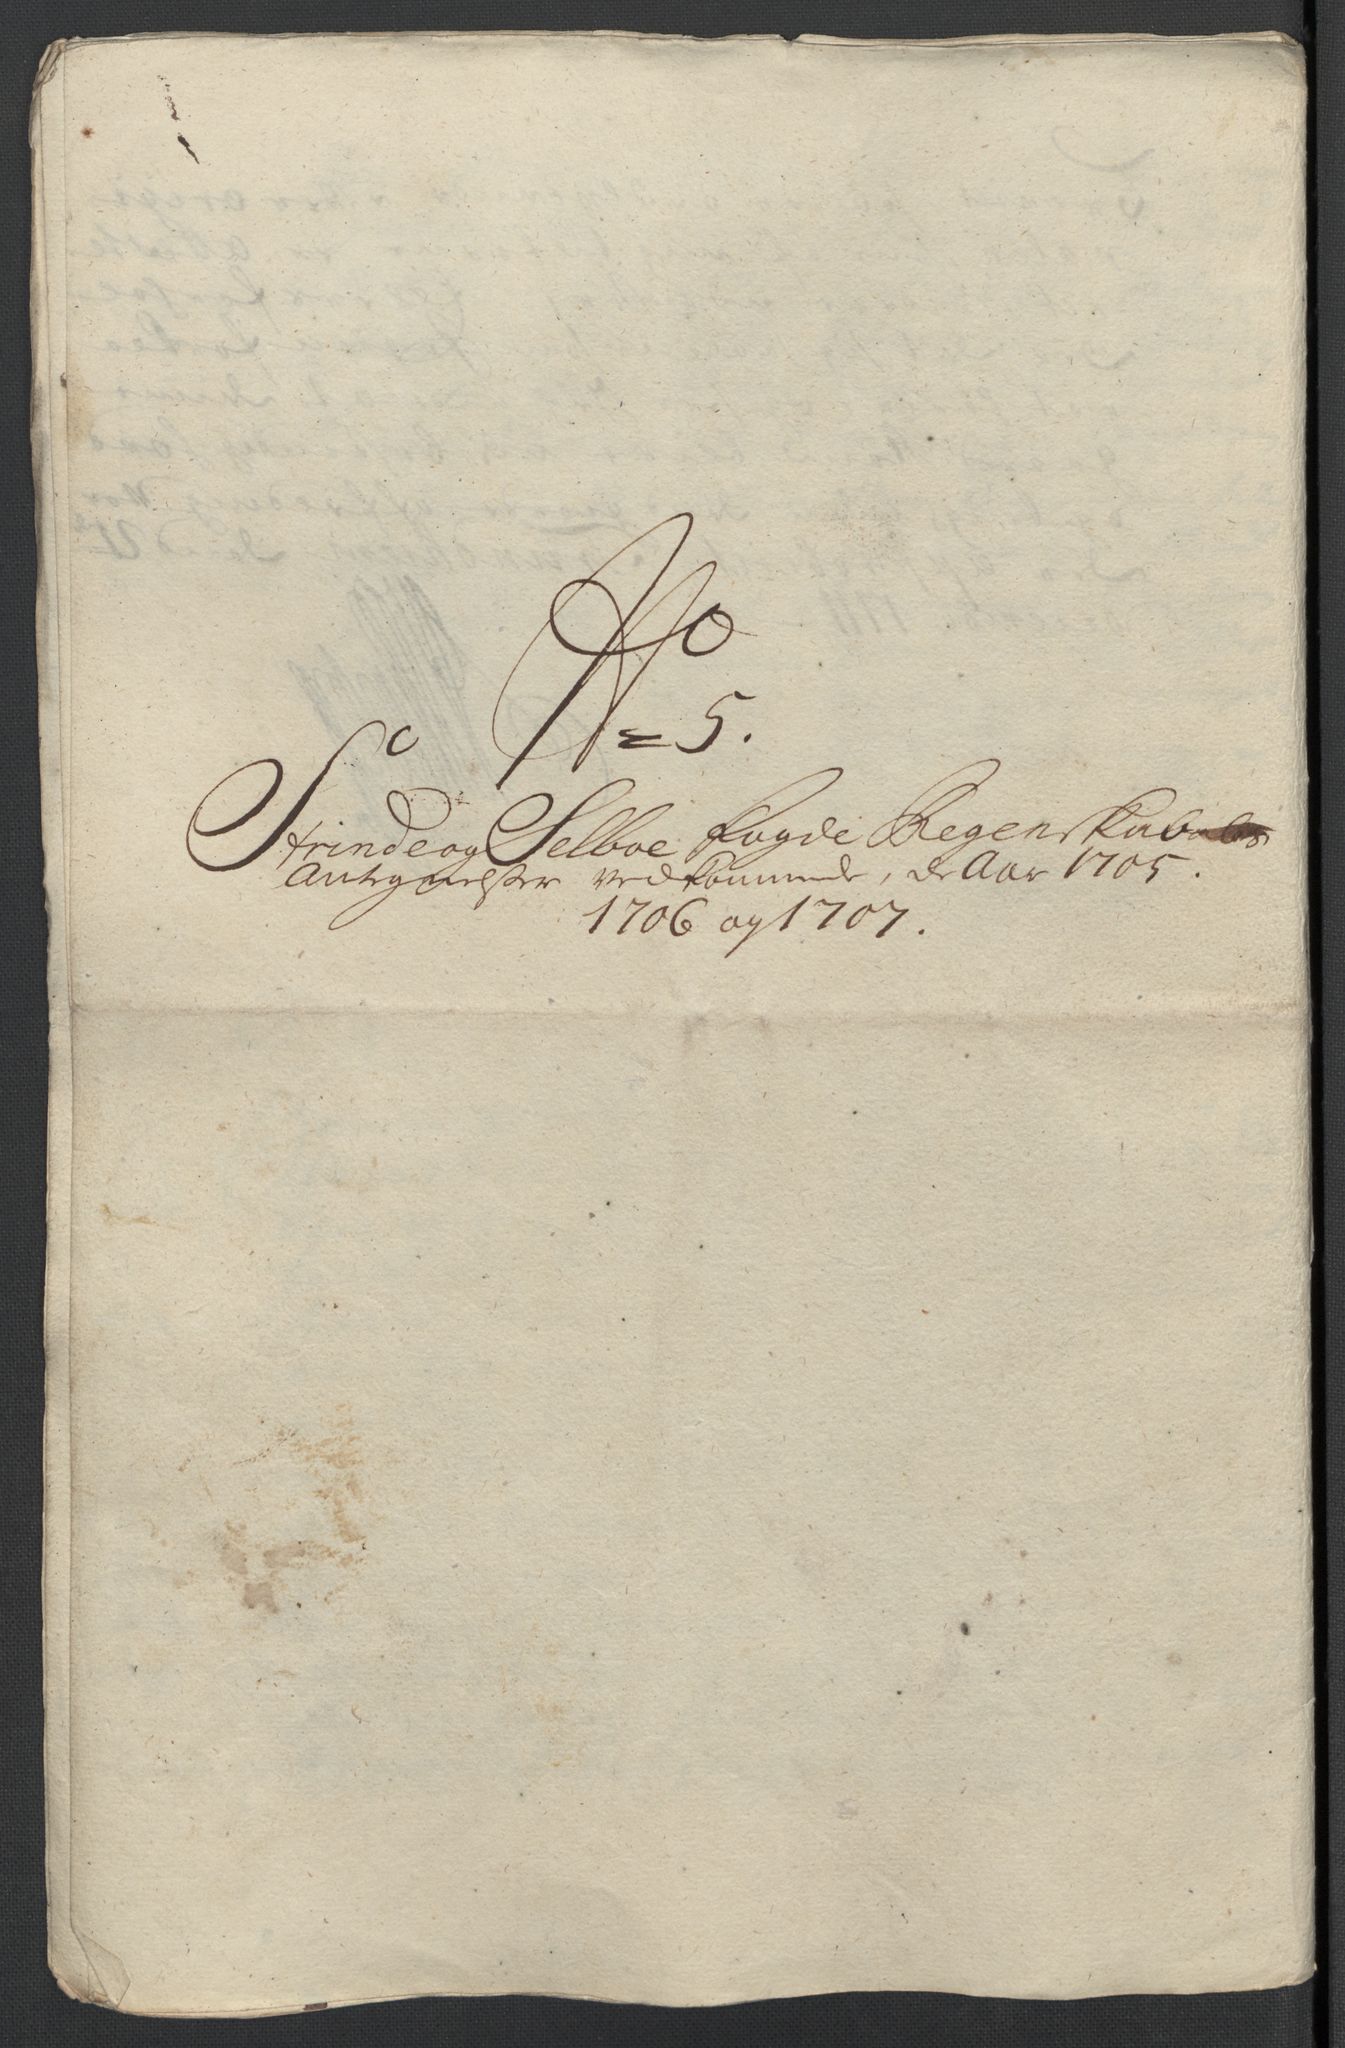 No
5.
Strinde og Selboe fogde Regenskabs
Antegnelser vedkommende, de Aar 1705.
1706 og 1707.